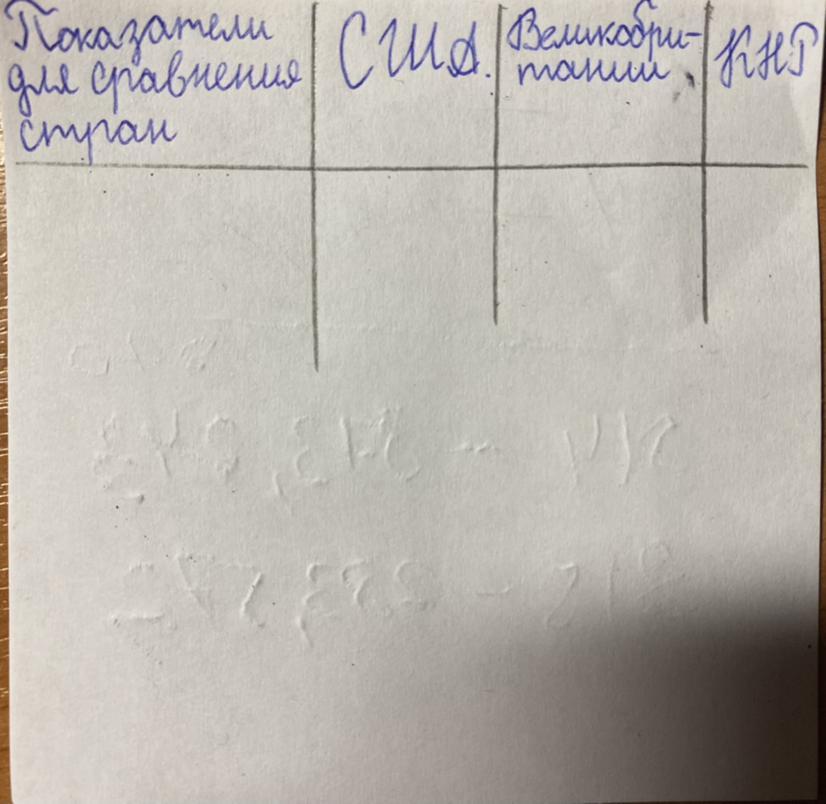 Показатели
для сравнения
стран
США.
Великобри-
тании
КНР